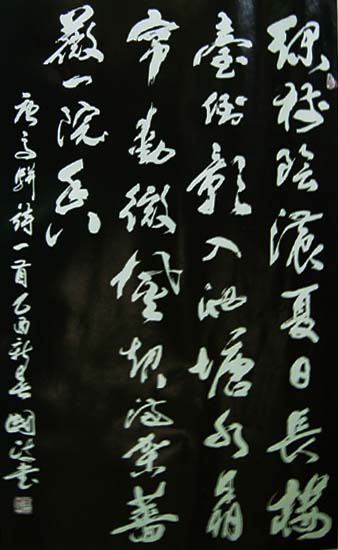 綠樹陰濃夏日長樓
臺倒影入池塘水晶
帘動微風起滿架薔
薇一院香
唐高駢詩一首乙酉新春國政書